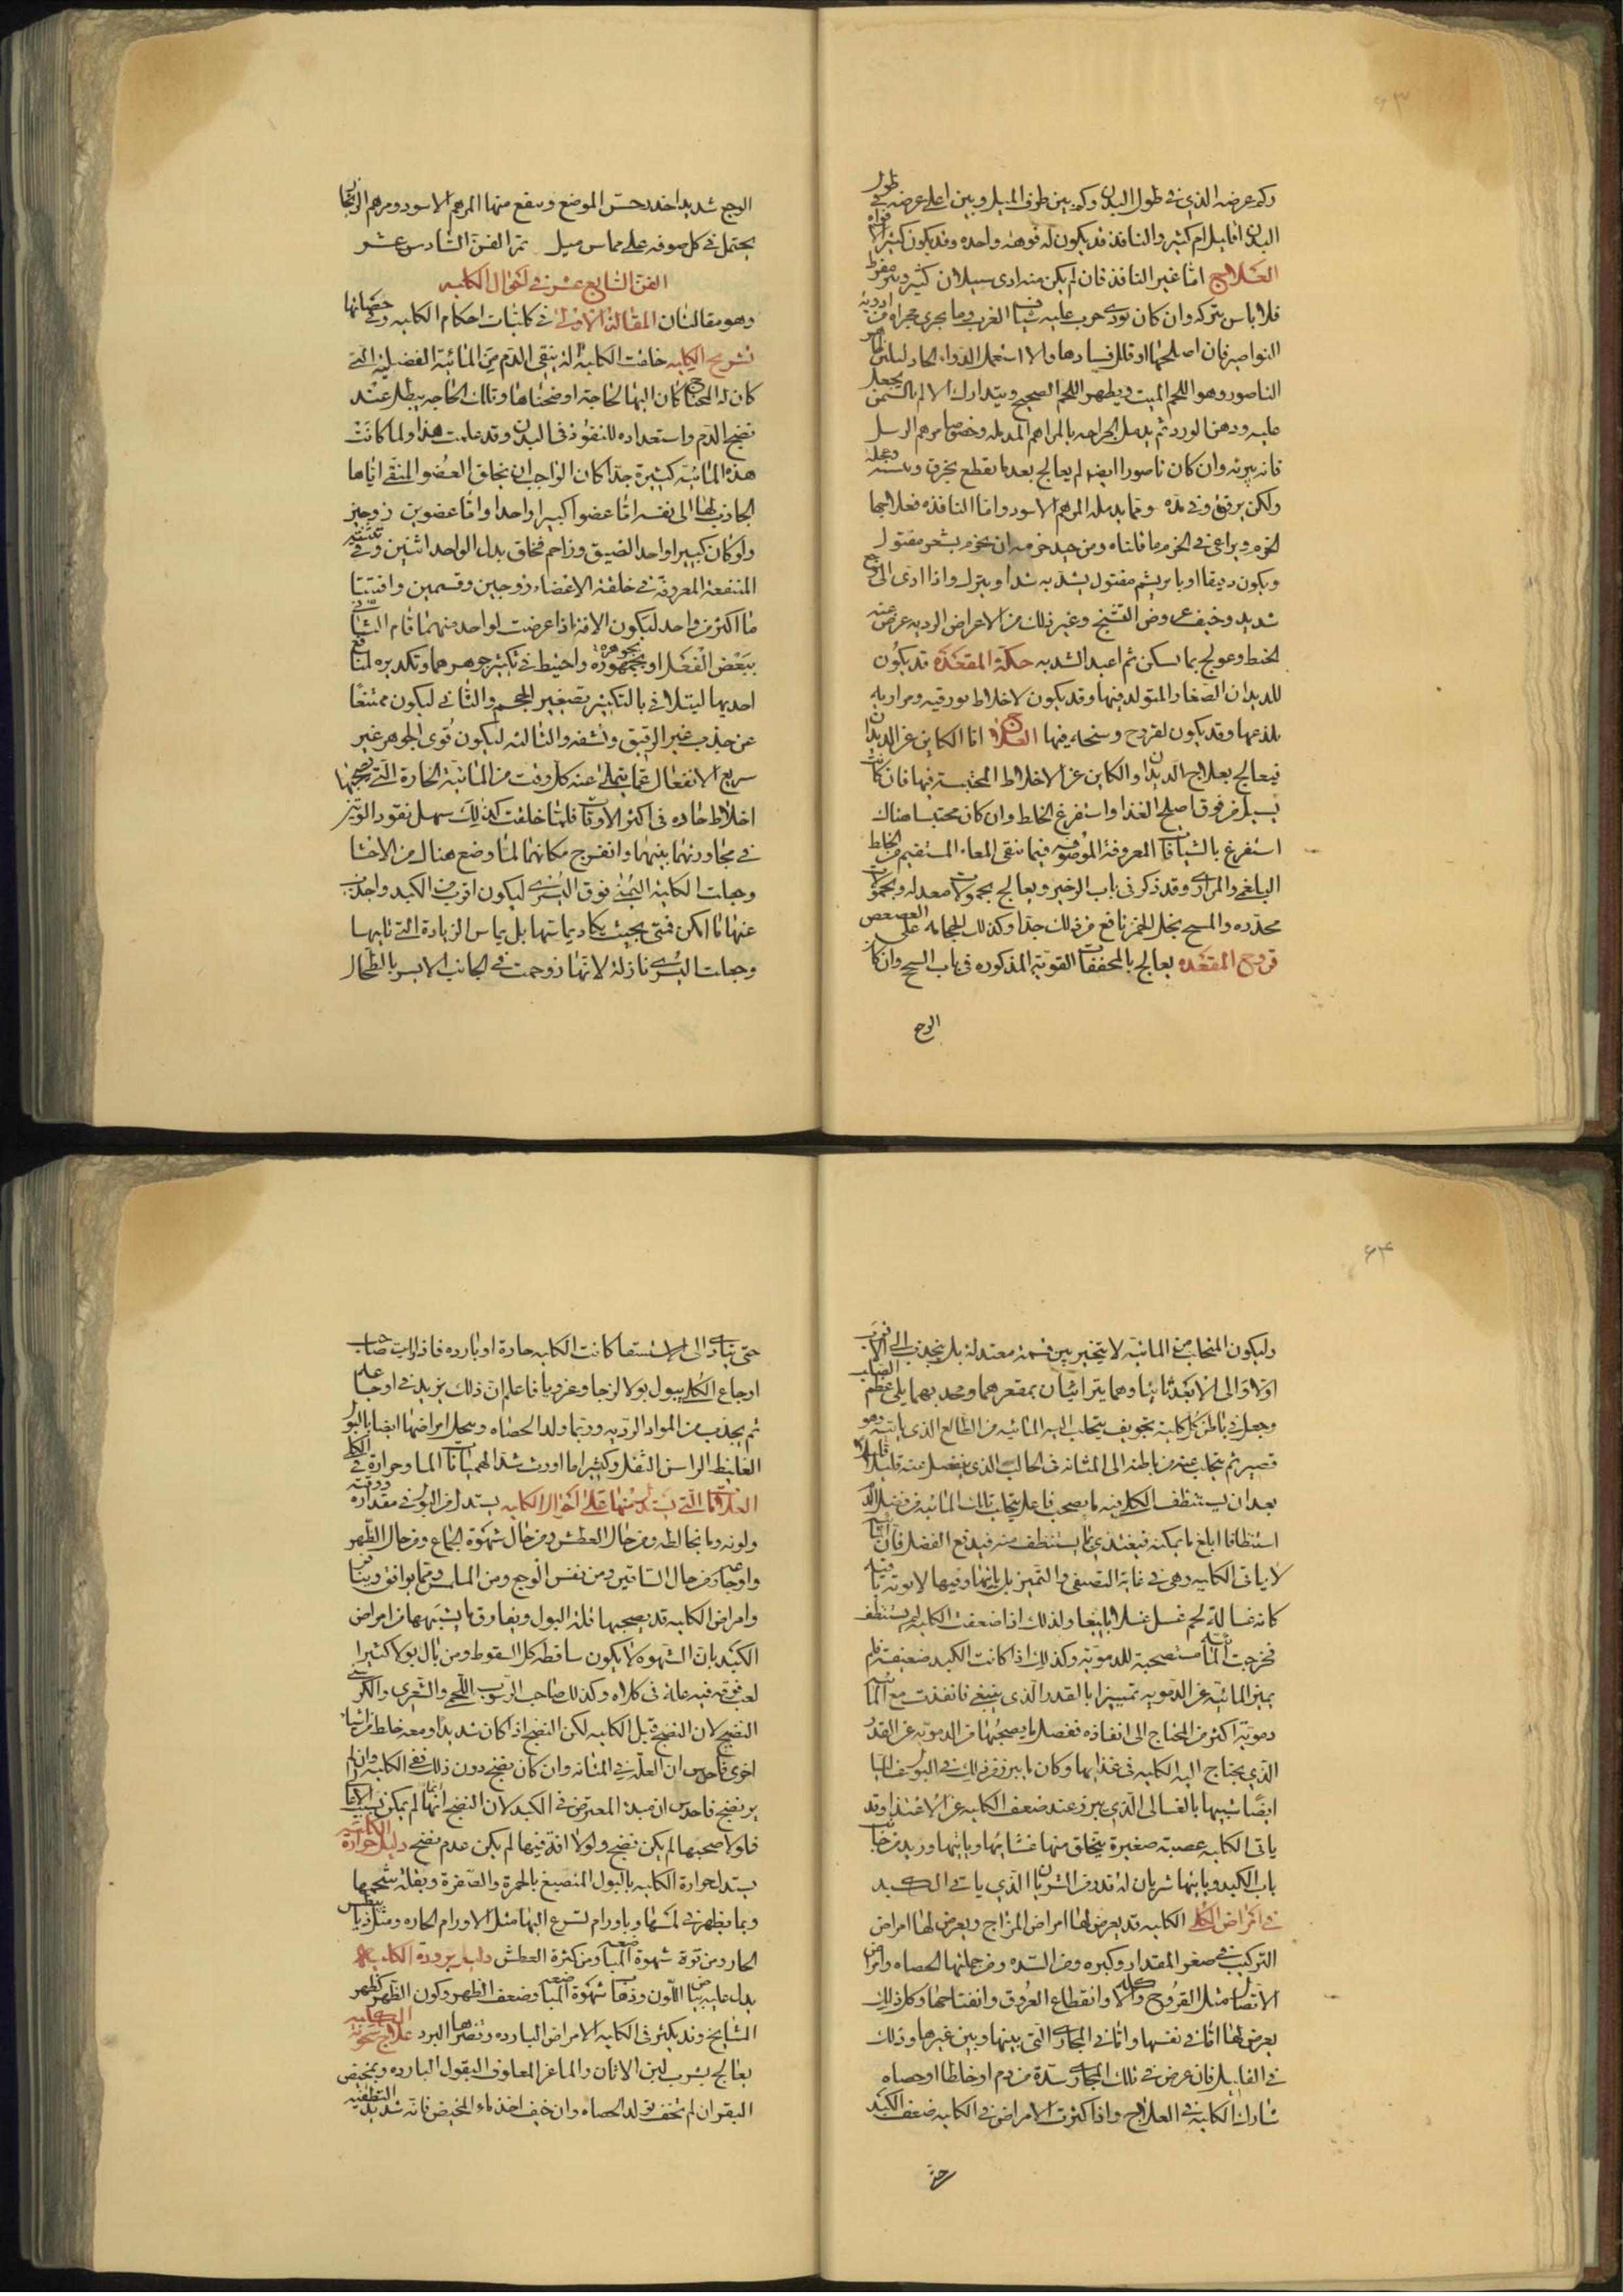 ٦٣
وكم عرضه الذي في طول البدن وكم بين طرف الميل وبين اعلى عرضه في طول
البدن اقليل ام كثير والنافذ قد يكون له فوهة واحده وقد يكون كثير الافواه
العلاج اما غير النافذ فان لم يكن منه اذى سيلان كثير ونتن مفرط
فلا باس بتركه وان كان يوذى جرب عليه شياف الغرب وما يجرى مجراه من ادوية
النواصير فان اصلحها او قلل فسادها والا استعمل الدواء الحاد ليبين
الناصور وهو اللحم الميت ويظهر اللحم الصحيح ويتدارك الالم بالسمن يجعل
عليه ودهن الورد ثم يدمل الجراحه بالمراهم المدمله وخصوصا مرهم الرسل
فانه يبريه وان كان ناصورا ايضا لم يعالج بعد ما يقطع بخرق
ولكن يرفق وفي مدة ومما يدمله المرهم الاسود واما النافذه فعلاجها
الخزم ويراعى في الخزم ما قلناه ومن جيد خزمه ان يخزم بشعر مفتول
ويكون دقيقا او بابريشم مفتول يشد به شدا ويترك واذا ادى الى وجع
شديد وخيف عروض التشنج وغير ذلك من الاعراض الرديه عرض عنه
الخيط وعولج بما يسكن ثم اعيد الشد به حكة المقعدة قد يكون
للديدان الصغار المتولد فيها وقد يكون لاخلاط بورقيه ومراريه
يلذعها وقد يكون لقروح وسخه فيها العلاج اما الكاين عن الديدان
فيعالج بعلاج الديدان والكاين عن الاخلاط المحتبسة فيها فان كانت
يسيل من فوق اصلح الغذا واستفرغ الخلط وان كان محتبسا هناك
استفرغ بالشيافات المعروفة الموصوفه فيما ينقى المعاء المستقيم من الخلط
البلغمى والمرارى وقد ذكر في باب الزحير ويعالج بحمولات معدله وبحمولات
مخدره والمسح بخل الخمر نافع من ذلك جدا وكذلك الحجامه على العصعص
قروح المقعده يعالج بالمجففات القوية المذكوره في باب السحج وان كان
الوج
الوجع شديدا خدر حس الموضع وينفع منها المرهم الاسود ومرهم الزنجار
يحتمل في كل صوفه على مماس ميل تم الفن السادس عشر
الفن السابع عشر في احوال الكليه
وهو مقالتان المقالة الاولى في كليات احكام الكليه وفي حصاتها
تشريح الكليه خلقت الكلية آلة ينقى الدم من المائية الفضلية التي
كان له المحتاج كان اليها الحاجة اوضحناها وتلك الحاجه يبطل عند
نضج الدم واستعداده للنفوذ في البدن وقد علمت هذا ولما كانت
هذه المائية كثيرة جدا كان الواجب ان يخلق العضو المنقى اياها
الجاذب لها الى نفسه اما عضوا كبيرا واحدا واما عضوين زوجين
ولو كان كبيرا واحدا لضيق وزاحم فخلق بدل الواحد اثنين وفي تثنيته
المنفعة المعروفة في خلقة الاعضاء زوجين وقسمين واقسيتا
ما اكثر من واحد ليكون الافة اذا عرضت لواحد منهما قام الثاني
ببعض الفعل او بجمهوره واحتيط في تكثير جوهرهما وتكديره لمنافع
احديها ليتلافى بالتكثير تصغير الحجم والثاني ليكون ممتنعا
عن جذب غير الرقيق ونشفه والثالثة ليكون قوى الجوهر غير
سريع الانفعال عما يتملى عنه كل وقت من المائية الحارة التي يصحبها
اخلاط حاده في اكثر الاوقات فلما خلقت كذلك سهل نفوذ الوتين
في مجاورتهما بينهما وانفرج مكانهما لما وضع هناك من الاحشا
وجعلت الكلية اليمنى فوق اليسرى ليكون اقرب من الكبد واجذب
عنها ما امكن فهى بحيث يكاد يماسها بل يماس الزيادة التي تليها
وجعلت اليسرى نازلة لانها زوحمت في الجانب الايسر بالطحال
٦٤
وليكون المتجلب من المائية لا يتحير بين قسمة معتدلة بل ينجذب الى الاقرب
اولا والى الابعد ثانيا وهما يتراايان بمقعرهما ومحدبهما يلى عظم الصلب
وجعل في باطن كل كلية تجويف يتجلب اليه المائيه من الطالع الذي ياتيه وهو
قصير ثم يتجلب عنه من باطنه الى المثانة في الحالب الذي ينفصل عنه قليلا قليلا
بعد ان يستنظف الكليه ما يصحب فاعل تجلب تلك المائيه من فضل الدم
استنظافا ابلغ ما يمكنه فيغتذى بما يستنظف منه فيدفع الفضل فان المائية
لا ياتى الكليه وهي في غاية التصفى والتميز بل ياتيها وفيها لا يوتد باقيه
كانه غسالة لحم غسل غسلا بليغا ولذلك اذا ضعفت الكليه لم يستنظف
فخرجت المائية مستصحبة للدموية وكذلك اذا كانت الكبد ضعيفة فلم
يميز المائية عن الدمويه تمييزا بالقدر الذي ينبغي فانفذت مع المائيه
دموية اكثر من المحتاج الى انفاذه ففصل ما يصحبها من الدمويه عن القدر
الذي يحتاج اليه الكليه في غذايها وكان ما يبرز من ذلك في البول غساليا
ايضا شبيها بالغسالى الذي يبرز عند ضعف الكليه عن الاغتذا وقد
ياتى الكليه عصبة صغيرة يتخلق منها غشائها وياتيها وريد من جانب
باب الكبد وياتيها شريان له قدر من الشريان الذي ياتي الكبد
في امراض الكلى الكليه قد يعرض لها امراض المزاج ويعرض لها امراض
التركيب من صغر المقدار وكبره ومن السده ومن جملتها الحصاه وامراض
الاتصال مثل القروح والاكله وانقطاع العروق وانفتاحها وكل ذلك
يعرض لها اما في نفسها واما في المجارى التي بينها وبين غيرها وذلك
في القليل فان عرض في تلك المجارى سدة من دم او خلط او حصاه
شارك الكلية في العلاج واذا كثرت الامراض في الكليه ضعف الكبد
حتى
حتى يتادى الى الاستسقا كانت الكليه حارة او بارده فاذا رايت صاحب
اوجاع الكلى يبول بولا لزجا وغرويا فاعلم ان ذلك يزيد في اوجاعه
ثم يجذب من المواد الرديه وربما ولد الحصاه وينحل امراضها ايضا بالبول
الغليظ الراسن الثفل وكثيرا ما اورث شد الهميانات الما وحرارة في الكلى
العلامات التي يستدل منها على احوال الكليه يستدل من البول في مقداره ورقته
ولونه وما يخالطه ومن حال العطش ومن حال شهوة الجماع ومن حال الظهر
واوجاعه ومن حال الساقين ومن نفس الوجع ومن الملمس ومما يوافق وينافى
وامراض الكليه قد يصحبها قلة البول ويفارق ما يشبهها من امراض
الكبد بان الشهوة لا يكون ساقطه كل السقوط ومن بال بولا كثيرا
لعب فوقه فبه علة في كلاه وكذلك صاحب الرسوب اللحمى والشعرى والكرسنى
النضيج لان النضج قبل الكليه لكن النضج اذا كان شديدا ومعه خلط من اشيا
اخرى فاحدس ان العلة في المثانه وان كان نضج دون ذلك ففى الكليه وان لم
ير نضج فاحدس ان مبدا المعترض في الكبد لان النضج انما لم يمكن بسبب الاعالى
فلولا صحتها لم يكن نضج ولولا افة فيها لم يكن عدم نضج دليل حرارة الكليه
يستدل حرارة الكليه بالبول المنصبغ بالحمرة والصفرة وبقلة شحمها
وبما يظهر في لمسها وباورام تسرع اليها مثل الاورام الحاره ومثل ذيابيطس
الحار ومن قوة شهوة المباضعه ومن كثرة العطش دليل برودة الكليه
يدل عليه بياض اللون وذهاب شهوة المباضعه وضعف الظهر وكون الظهر كظهر
المشايخ وقد يكثر في الكليه الامراض البارده وتضرها البرد علاج سخونة الكليه
يعالج بشرب لبن الاتان والماعز المعلوف البقول البارده وبمخيض
البقر ان لم يخف تولد الحصاه وان خيف اخذ ماء المخيض فانه شديد التطفيه